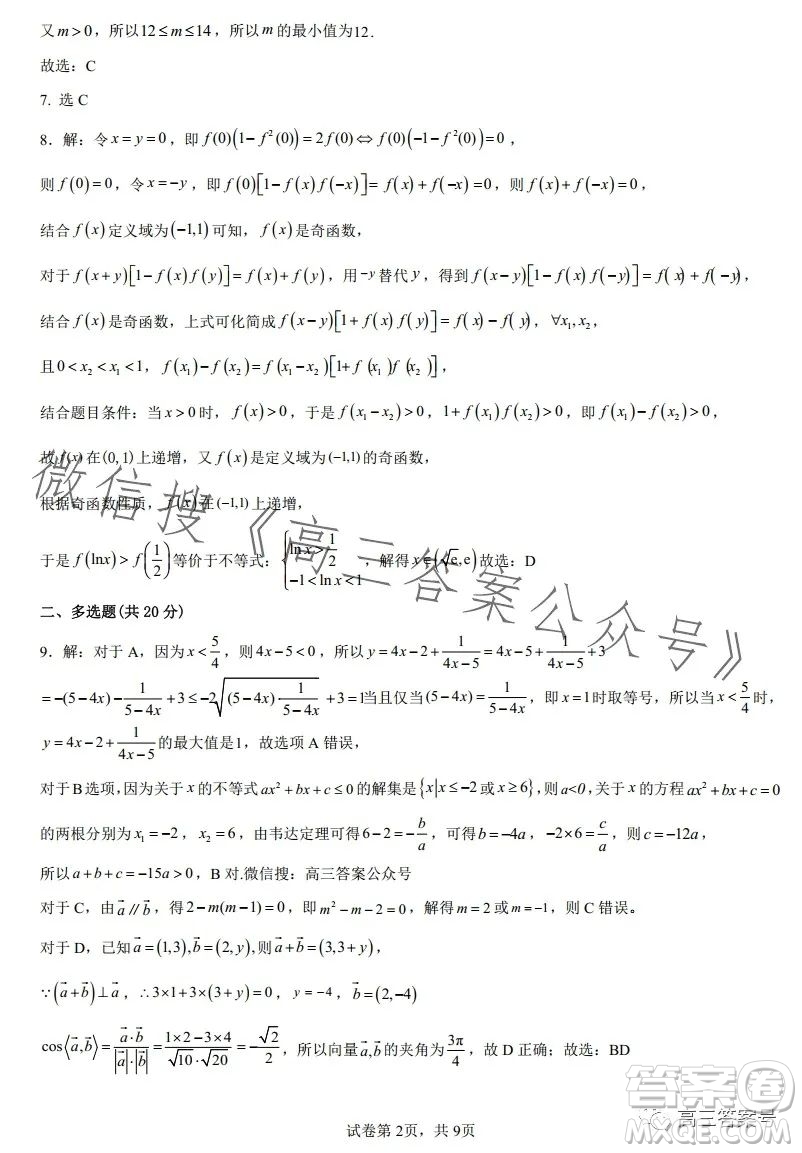 又 m > 0，所以 12 ≤ m ≤ 14，所以 m 的最小值为12.
故选：C
7. 选 C
8．解：令 x = y = 0，即 f(0)(1− f²(0)) = 2f(0) ⇔ f(0)(−1− f²(0)) = 0，
则 f(0) = 0，令 x = −y，即 f(0)[1− f(x)f(−x)] = f(x)+ f(−x) = 0，则 f(x)+ f(−x) = 0，
结合 f(x) 定义域为 (−1,1) 可知，f(x) 是奇函数，
对于 f(x+y)[1− f(x)f(y)] = f(x)+ f(y)，用 −y 替代 y，得到 f(x−y)[1− f(x)f(−y)] = f(x)+ f(−y)
结合 f(x) 是奇函数，上式可化简成 f(x−y)[1+ f(x)f(y)] = f(x)− f(y)，∀x₁, x₂，
且 0 < x₂ < x₁ < 1，f(x₁)− f(x₂) = f(x₁−x₂)[1+ f(x₁)f(x₂)]，
结合题目条件：当 x > 0 时，f(x) > 0，于是 f(x₁−x₂) > 0，1+ f(x₁)f(x₂) > 0，即 f(x₁)− f(x₂) > 0，
故 f(x) 在 (0,1) 上递增，又 f(x) 是定义域为 (−1,1) 的奇函数，
根据奇函数性质，f(x) 在 (−1,1) 上递增，
于是 f(lnx) > f(1/2) 等价于不等式：{ln x > 1/2, −1 < ln x < 1，解得 x∈(√e,e) 故选：D
二、多选题(共 20 分)
9．解：对于 A，因为 x < 5/4，则 4x−5 < 0，所以 y = 4x−2+ 1/(4x−5) = 4x−5+ 1/(4x−5) +3
= −(5−4x)− 1/(5−4x) +3 ≤ −2√((5−4x)· 1/(5−4x)) +3 = 1 当且仅当 (5−4x) = 1/(5−4x)，即 x = 1 时取等号，所以当 x < 5/4 时，
y = 4x−2+ 1/(4x−5) 的最大值是1，故选项 A 错误，
对于 B 选项，因为关于 x 的不等式 ax² + bx + c ≤ 0 的解集是 {x|x ≤ −2 或 x ≥ 6}，则 a<0，关于 x 的方程 ax² + bx + c = 0
的两根分别为 x₁ = −2，x₂ = 6，由韦达定理可得 6−2 = − b/a，可得 b = −4a，−2×6 = c/a，则 c = −12a，
所以 a+b+c = −15a > 0，B 对.微信搜：高三答案公众号
对于 C，由 a⃗ // b⃗，得 2−m(m−1) = 0，即 m² − m − 2 = 0，解得 m = 2 或 m = −1，则 C 错误。
对于 D，已知 a⃗ = (1,3), b⃗ = (2, y), 则 a⃗ + b⃗ = (3,3+ y)，
∵(a⃗ + b⃗) ⊥ a⃗，∴3×1+3×(3+ y) = 0，y = −4，b⃗ = (2,−4)
cos⟨a⃗,b⃗⟩ = a⃗·b⃗/(|a⃗|·|b⃗|) = (1×2−3×4)/(√10·√20) = − √2/2，所以向量 a⃗,b⃗ 的夹角为 3π/4，故 D 正确；故选：BD
试卷第 2页，共 9页
微信搜《高三答案公众号》
答案圈
高三答案号
MXQE.COM